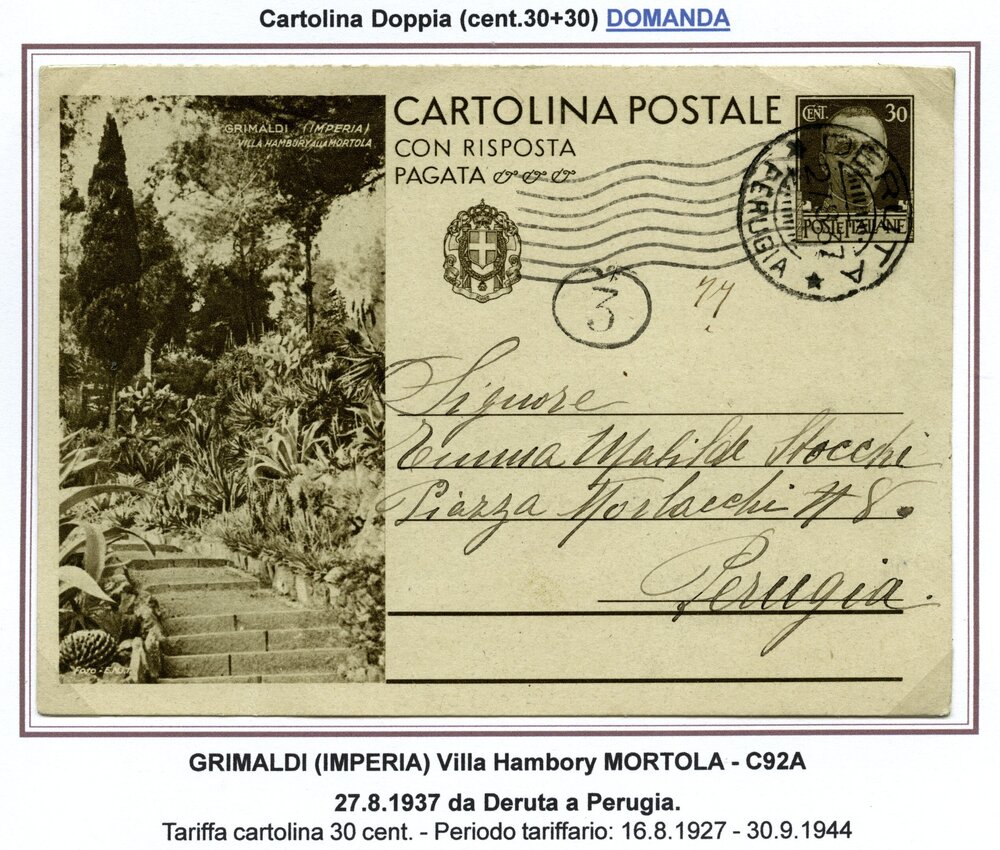 Cartolina Doppia (cent.30+30) DOMANDA
GRIMALDI (IMPERIA)
VILLA HAMBORY ALLA MORTOLA
CARTOLINA POSTALE
CON RISPOSTA
PAGATA
CENT. 30
POSTE ITALIANE
DERUTA
PERUGIA
3
Signore
Emma Matilde Stocchi
Piazza Morlacchi N 8.
Perugia.
Foto - E.N.I.T.
GRIMALDI (IMPERIA) Villa Hambory MORTOLA - C92A
27.8.1937 da Deruta a Perugia.
Tariffa cartolina 30 cent. - Periodo tariffario: 16.8.1927 - 30.9.1944